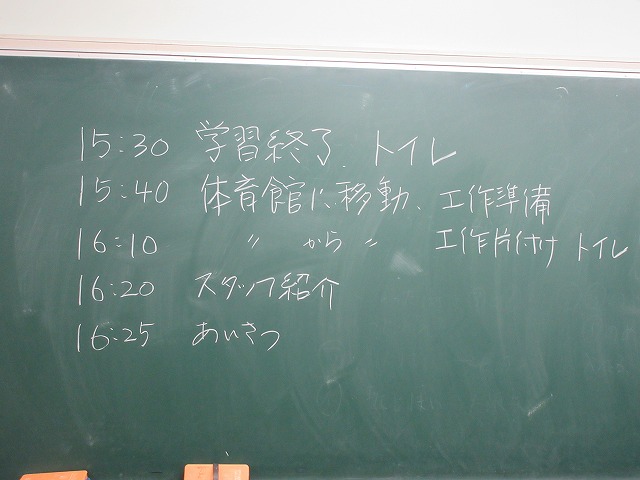 15:30 学習終了、トイレ
15:40 体育館に移動、工作準備
16:10 〃 から 〃 工作片付け トイレ
16:20 スタッフ紹介
16:25 あいさつ